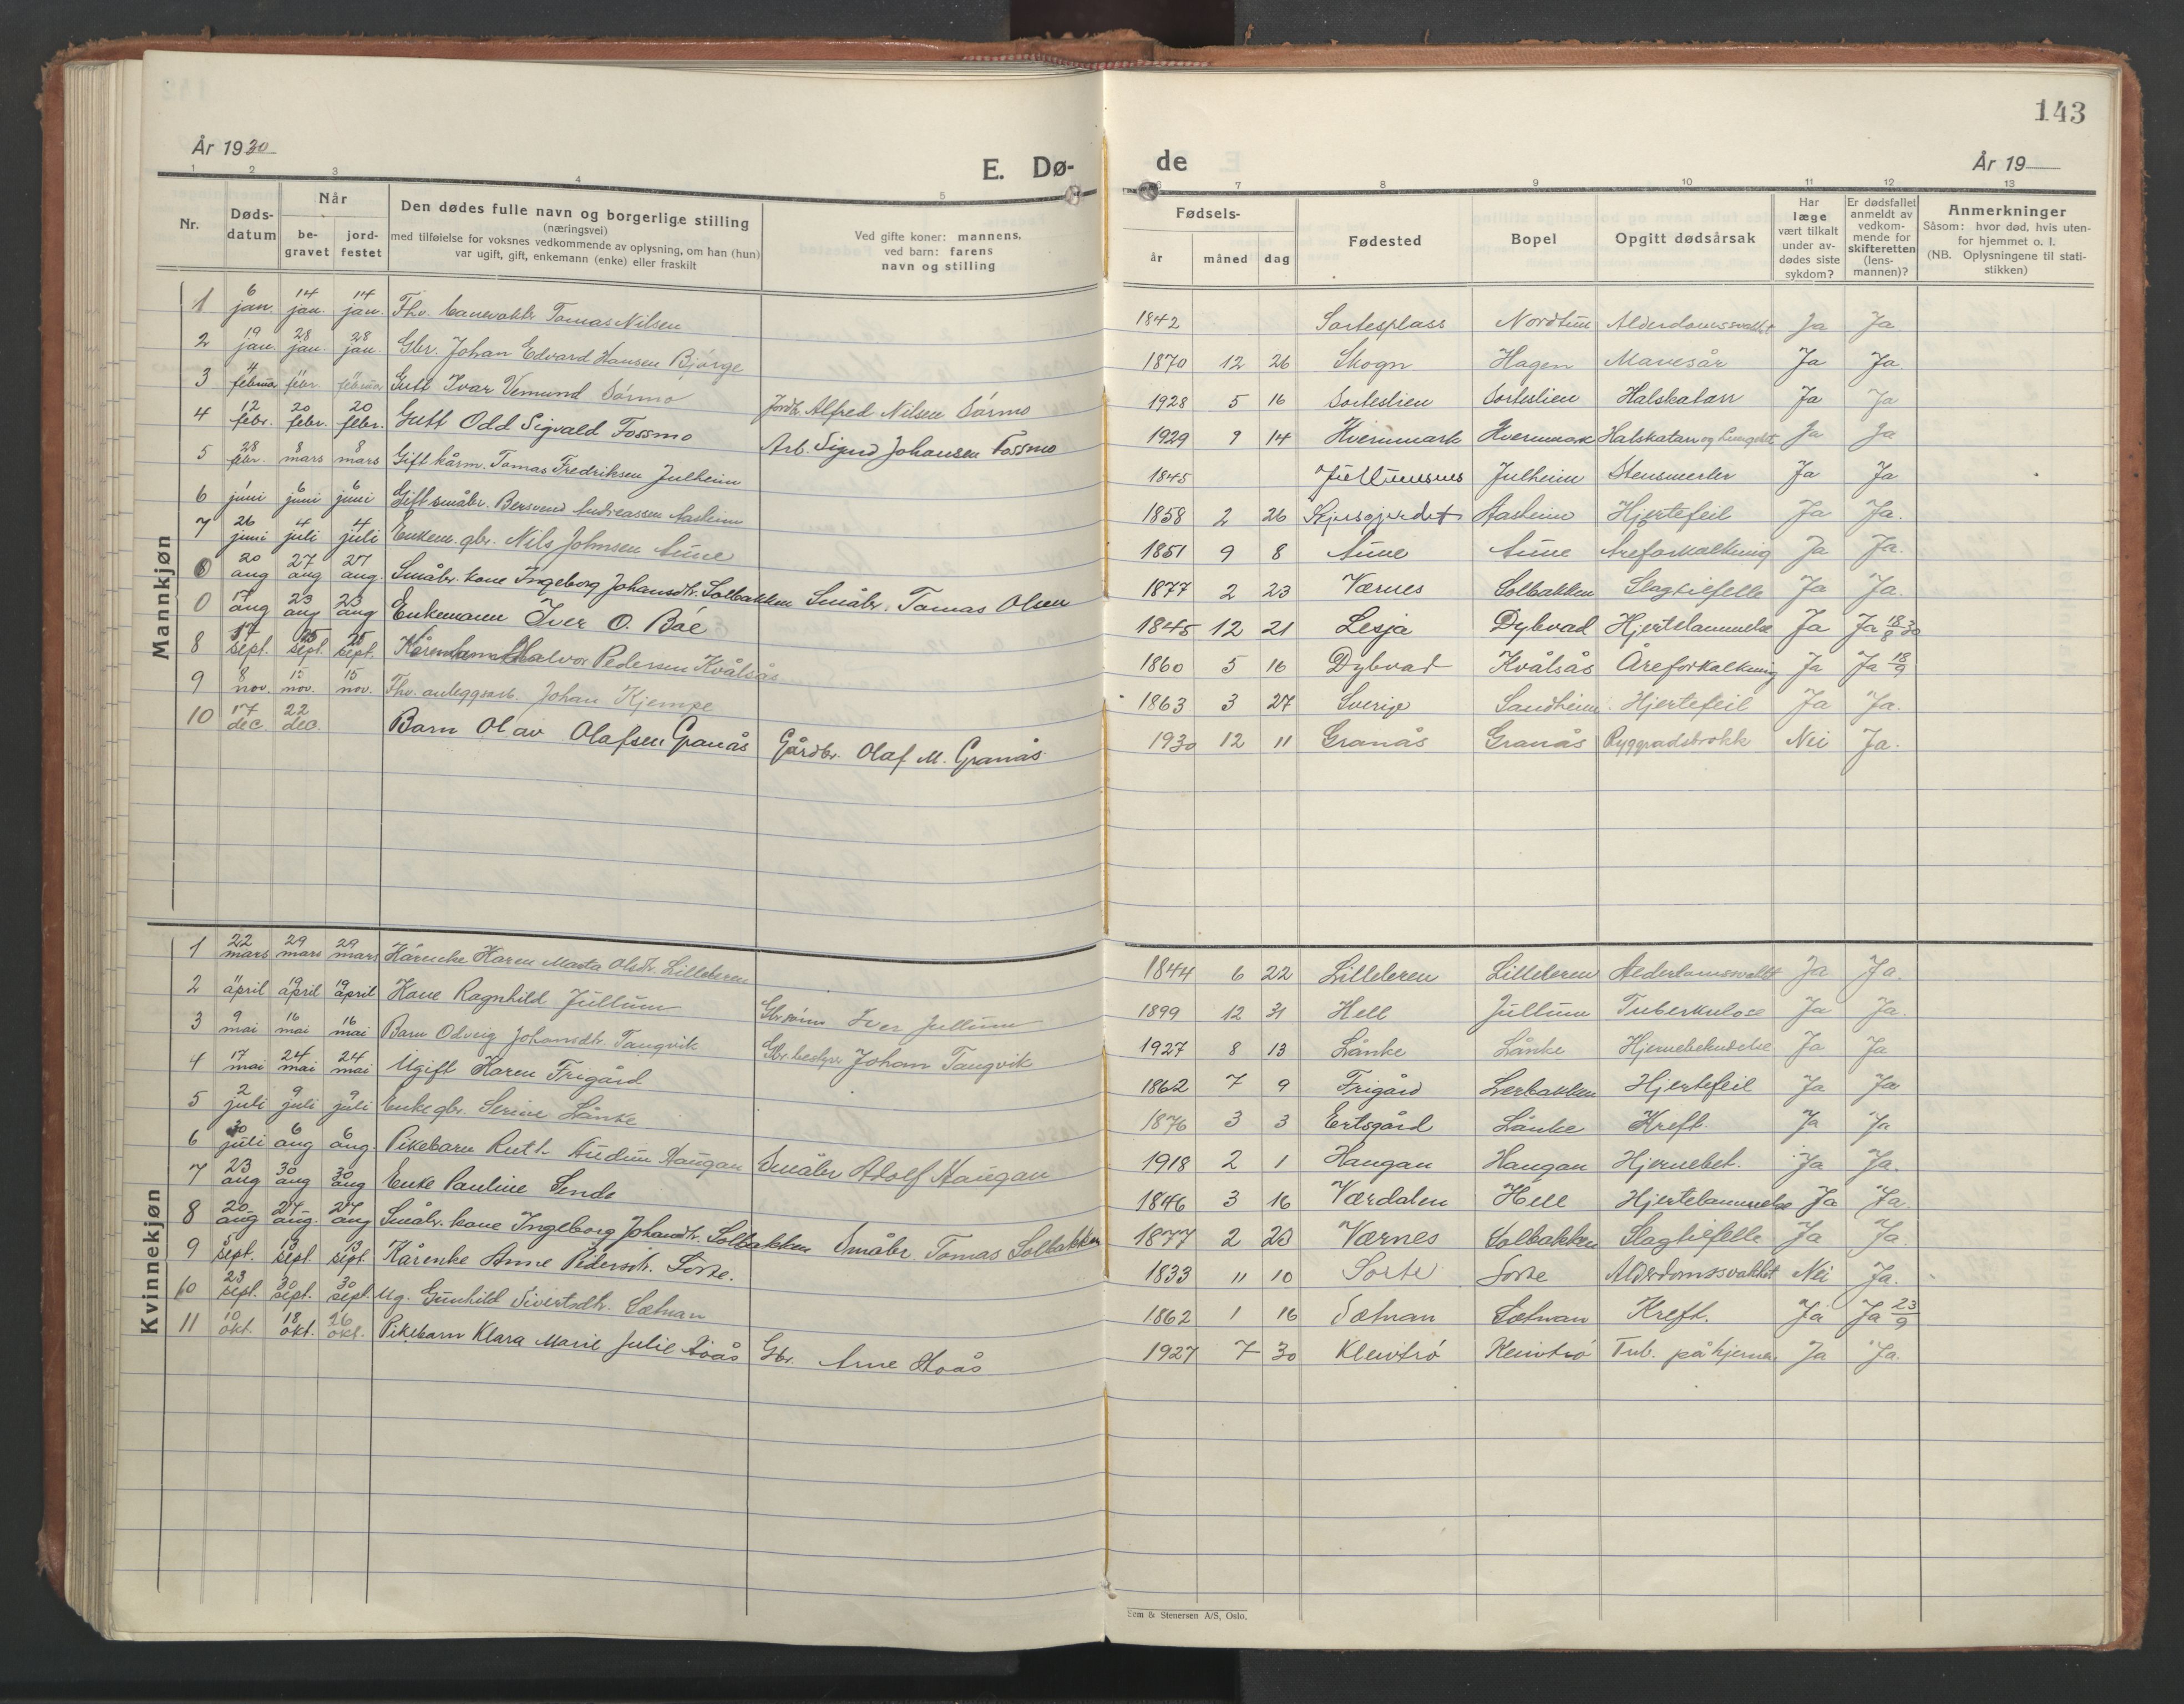 143
År 1930
E. Dø-
de
År 19
1 2 3 4 5 6 7 8 9 10 11 12 13
Nr. Døds-datum Når be-gravet jord-festet Den dødes fulle navn og borgerlige stilling (næringsvei) med tilføielse for voksnes vedkommende av oplysning, om han (hun) var ugift, gift, enkemann (enke) eller fraskilt Ved gifte koner: mannens, ved barn: farens navn og stilling Fødsels- år måned dag Fødested Bopel Opgitt dødsårsak Har læge vært tilkalt under av-dødes siste sykdom? Er dødsfallet anmeldt av vedkom-mende for skifteretten (lens-mannen)? Anmerkninger Såsom: hvor død, hvis uten-for hjemmet o. l. (NB. Oplysningene til stati-stikken)
Mannkjøn
1 6 jan. 14 jan. 14 jan. Fhv. banevokter Tomas Nilsen 1842 Sortesplass Nordtun Alderdomssvakhet Ja Ja
2 19 jan. 28 jan. 28 jan. Gbr. Johan Edvard Hansen Bjørge 1870 12 26 Skogn Hagen Mavesår Ja Ja
3 4 februar 11 febr. 11 februar Gutt Ivar Vemund Sørmo Jordbr. Alfred Nilsen Sørmo 1928 5 16 Sorteslien Sorteslien Halskatarr Ja Ja
4 12 febr. 20 febr. 20 febr. Gutt Odd Sigvald Fossmo Arb. Sigurd Johansen Fossmo 1929 9 14 Hvernmark Hvernmark Halskatarr og Ja Ja
5 28 febr. 8 mars 8 mars Gift kårm. Tomas Fredriksen Julheim 1845 Jullumsnes Julheim Stensmerter Ja Ja
6 1 juni 6 juni 6 juni Gift småbr. Bersvend Andreassen Aasheim 1858 2 26 Skjersgjerdet Aasheim Hjertefeil Ja Ja.
7 26 juni 4 juli 4 juli Enkem. gbr. Nils Johnsen Aune 1851 9 8 Aune Aune Areforkalkning Ja Ja.
0 20 aug 27 aug 27 aug. Småbr. kone Ingeborg Johansdtr. Solbakken Småbr. Tomas Olsen 1877 2 23 Værnes Solbakken Slagtilfelle Ja Ja.
0 17 aug 23 aug 23 aug Enkemann Iver O. Båe 1845 12 21 Lesja Dybvad Hjertelammelse Ja Ja 18/8 30
8 17 sept. 25 sept. 25 sept. Kårmann Halvor Pedersen Kvålsås 1860 5 16 Dybvad Kvålsås Åreforkalkning Ja Ja 18/9
9 8 nov. 15 nov. 15 nov. Fhv. anleggsarb. Johan Kjempe 1863 3 27 Sverige Sandheim Hjertefeil Ja Ja.
10 17 dec. 22 dec. Barn Olav Olafsen Granås Gårdbr. Olaf M. Granås 1930 12 11 Granås Granås Ryggradsbrokk Nei Ja.
Kvinnekjøn
1 22 mars 29 mars 29 mars Kårenke Karen Marta Olsdtr. Lilleleren 1844 6 22 Lilleleren Lilleleren Alderdomssvakhet Ja Ja.
2 11 april 19 april 19 april Kone Ragnhild Jullum Gbr. sønn Iver Jullum 1899 12 31 Hell Jullum Tuberkulose Ja Ja.
3 9 mai 16 mai 16 mai Barn Odveig Johansdtr. Tangvik Gbr. bestyr. Johan Tangvik 1927 8 13 Lånke Lånke Hjernebetendelse Ja Ja
4 17 mai 24 mai 24 mai Ugift Karen Frigård 1862 7 9 Frigård Lerbakken Hjertefeil Ja Ja
5 2 juli 9 juli 9 juli Enke gbr. Serine Lånke 1876 3 3 Ertsgård Lånke Kreft. Ja Ja
6 30 juli 6 aug 6 aug. Pikebarn Rut Audun Haugan Småbr Adolf Haugan 1918 2 1 Haugan Haugan Hjernebet. Ja Ja.
7 23 aug 30 aug 30 aug Enke Pauline Sende 1846 3 16 Værdalen Hell Hjertelammelse Ja Ja.
8 20 aug 27 aug. 27 aug Småbr. kone Ingeborg Johansdtr. Solbakken Småbr. Tomas Solbakken 1877 2 23 Værnes Solbakken Slagtilfelle Ja Ja.
9 5 sept. 13 sept. 13 sept. Kårenke Anne Pedersdtr. Sorte. 1833 11 10 Sorte Sorte Alderdomssvakhet Nei Ja.
10 23 sept. 30 sept. 30 sept. Ug. Gunhild Sivertsdtr. Sætnan 1862 1 16 Sætnan Sætnan Kreft. Ja Ja 23/9
11 10 okt. 18 okt. 26 okt. Pikebarn Klara Marie Julie Hoås Gbr. Arne Hoås 1927 7 30 Kleivtrø Kleivtrø Tub. på hjernen. Ja Ja.
Sem & Stenersen A/S, Oslo.